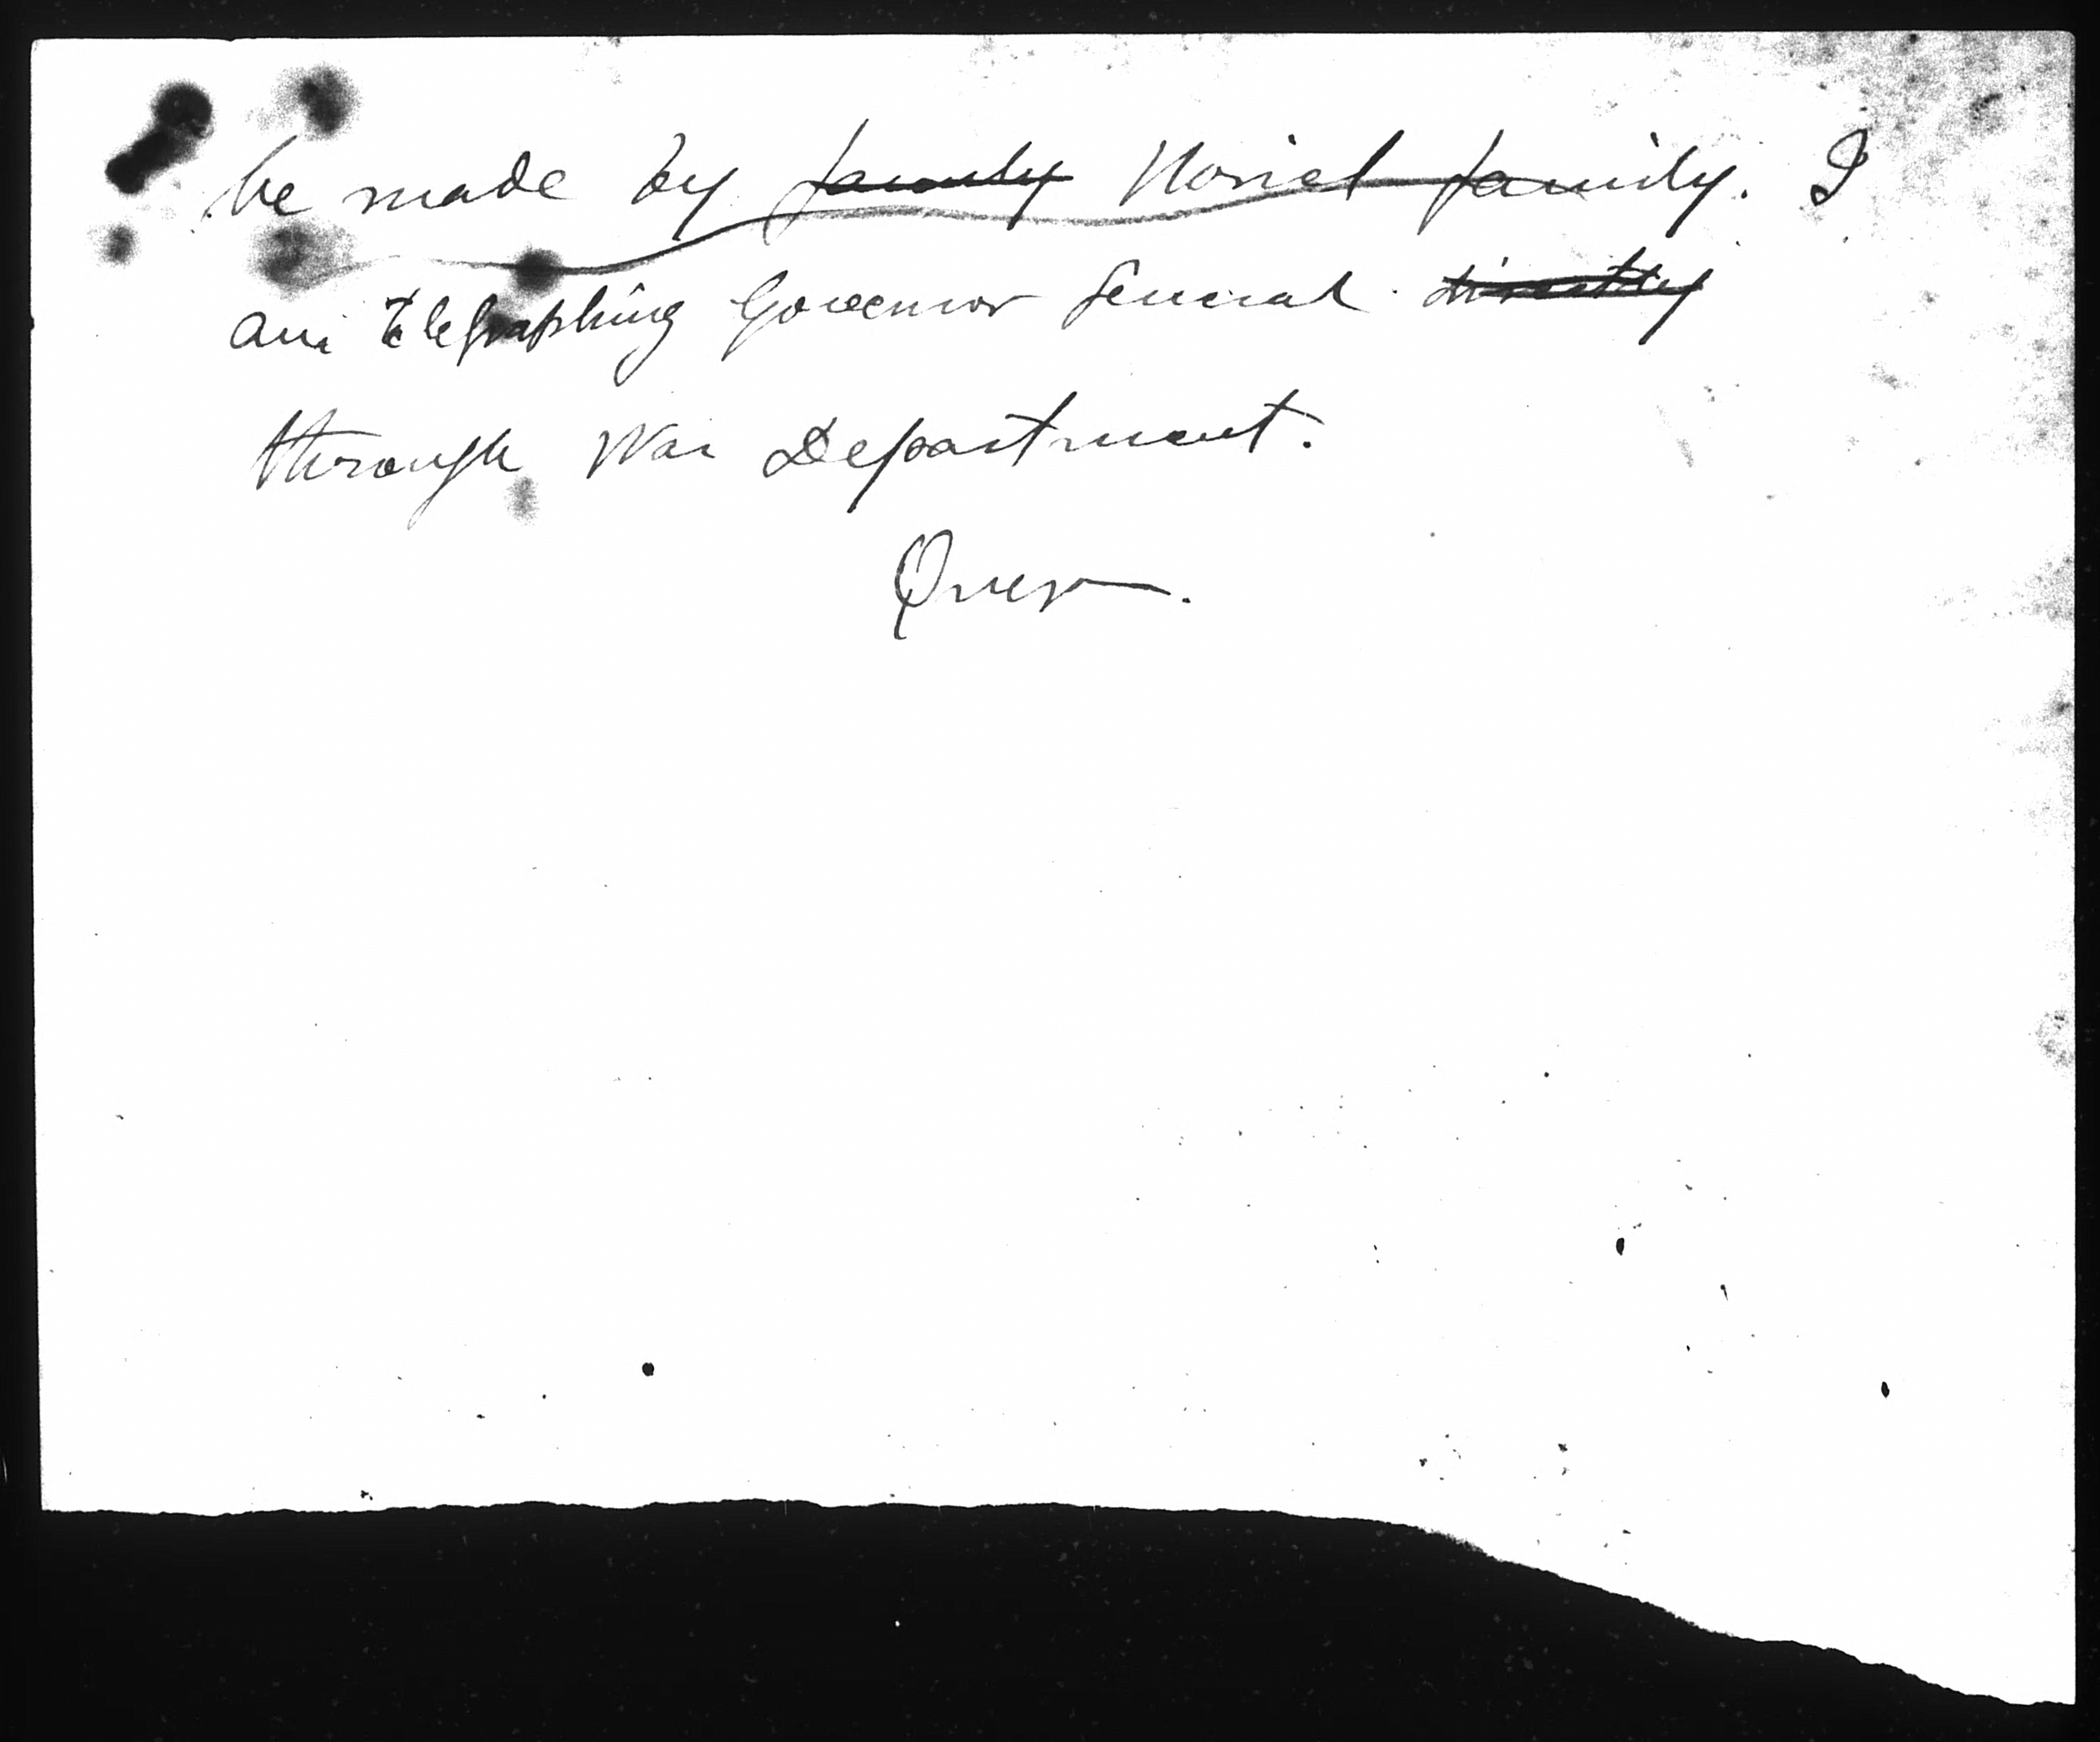 be made by family Noriel family. I
am telegraphing Governor General directly
through War Department.
Quezon.